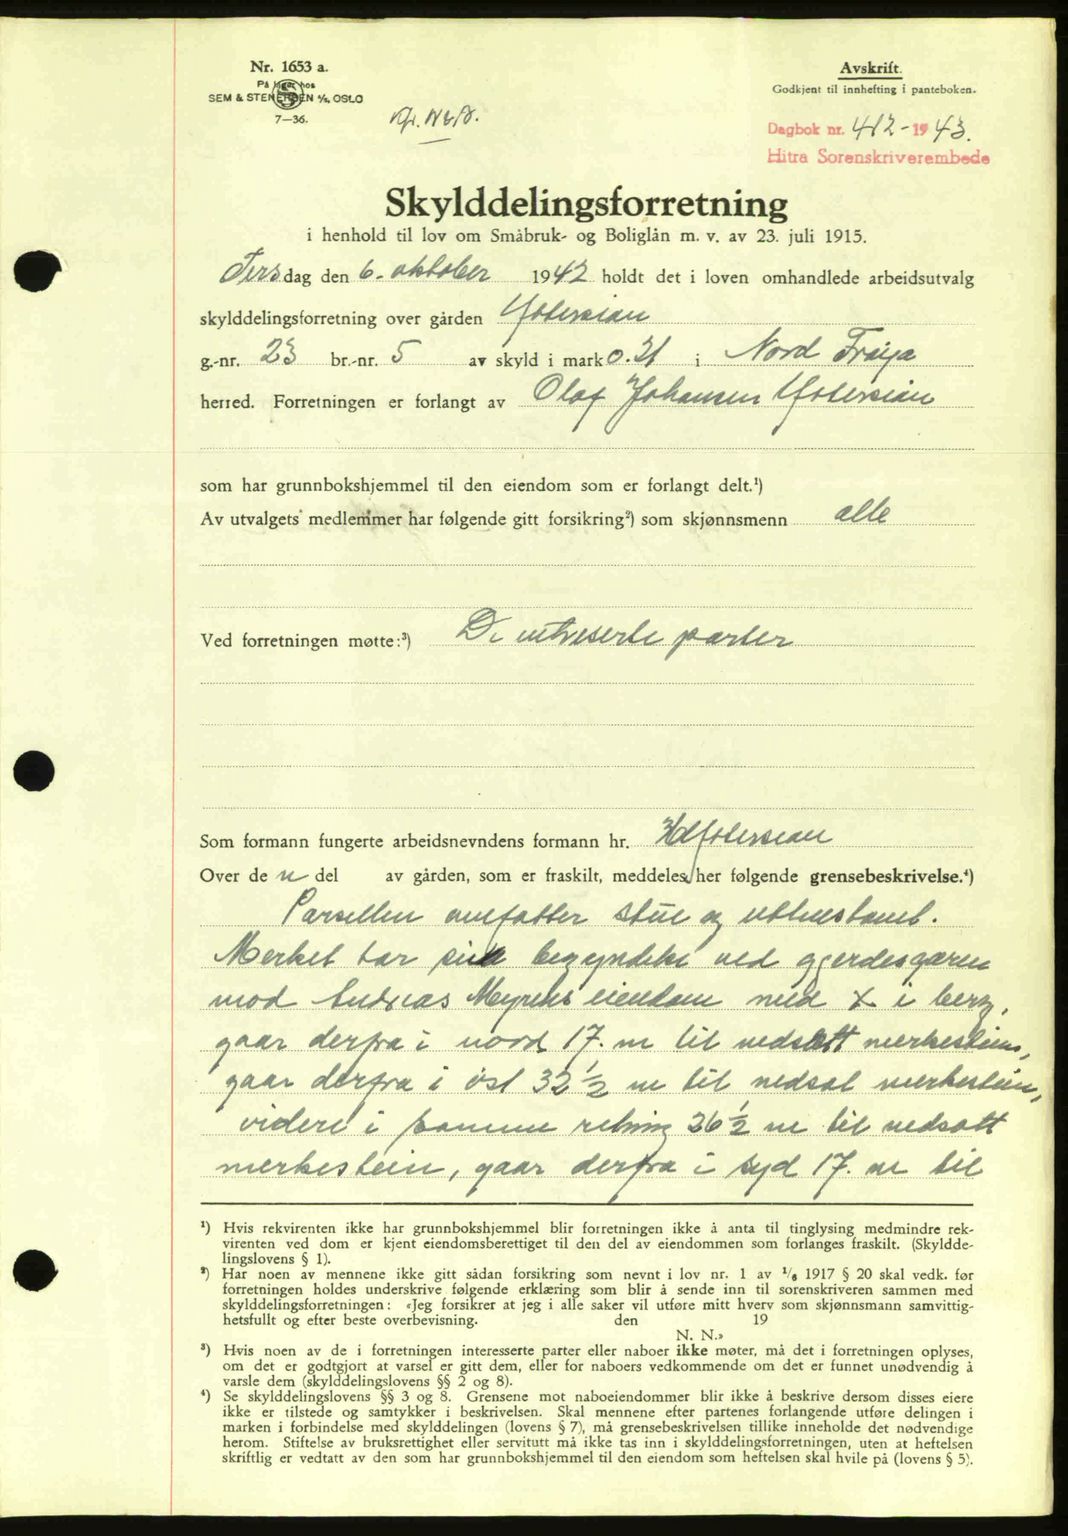 Nr. 1653 a.
På lager hos
SEM & STENERSEN A/S, OSLO
7—36.
Avskrift.
Godkjent til innhefting i panteboken.
Dagbok nr. 412 - 1943.
Hitra Sorenskriverembede
Skylddelingsforretning
i henhold til lov om Småbruk- og Boliglån m. v. av 23. juli 1915.
Tirsdag den 6. oktober 1942 holdt det i loven omhandlede arbeidsutvalg
skylddelingsforretning over gården Ystersian
g.-nr. 23 br.-nr. 5 av skyld i mark 0.31 i Nord Frøya
herred. Forretningen er forlangt av Olaf Johansen Ystersian
som har grunnbokshjemmel til den eiendom som er forlangt delt.¹)
Av utvalgets medlemmer har følgende gitt forsikring²) som skjønnsmenn alle
Ved forretningen møtte:³) De intreserte parter
Som formann fungerte arbeidsnevndens formann hr. Ystersian
Over den del av gården, som er fraskilt, meddeles her følgende grensebeskrivelse.⁴)
Parsellen omfatter stue og uthustomt.
Merket tar sin begyndelse ved gjerdesgaren
mod Andreas Myrens eiendom med X i berg,
gaar derfra i nord 17. m til nedsatt merkestein,
gaar derfra i øst 32 1/2 m til nedsat merkestein,
videre i samme retning 26 1/2 m til nedsatt
merkestein, gaar derfra i syd 17. m til
¹) Hvis rekvirenten ikke har grunnbokshjemmel blir forretningen ikke å anta til tinglysing medmindre rek-
virenten ved dom er kjent eiendomsberettiget til den del av eiendommen som forlanges fraskilt. (Skyldde-
lingslovens § 1).
²) Har noen av mennene ikke gitt sådan forsikring som nevnt i lov nr. 1 av 1/6 1917 § 20 skal vedk. før
forretningen holdes underskrive følgende erklæring som blir å sende inn til sorenskriveren sammen med
skylddelingsforretningen: «Jeg forsikrer at jeg i alle saker vil utføre mitt hverv som skjønnsmann samvittig-
hetsfullt og efter beste overbevisning. den 19
N. N.»
³) Hvis noen av de i forretningen interesserte parter eller naboer ikke møter, må det i forretningen oplyses,
om det er godtgjort at varsel er gitt dem, eller for naboers vedkommende om det er funnet unødvendig å
varsle dem (skylddelingslovens §§ 2 og 8).
⁴) Se skylddelingslovens §§ 3 og 8. Grensene mot naboeiendommer blir ikke å beskrive dersom disses eiere
ikke er tilstede og samtykker i beskrivelsen. Skal mennene efter partenes forlangende utføre delingen i
marken i forbindelse med skylddelingen (lovens § 7), må grensebeskrivelsen tillike inneholde det nødvendige
herom. Stiftelse av bruksrettighet eller servitutt må ikke tas inn i skylddelingsforretningen, uten at heftelsen
skriftlig er vedtatt av den som har grunnbokshjemmel til den eiendom som heftelsen skal hvile på (lovens § 5).